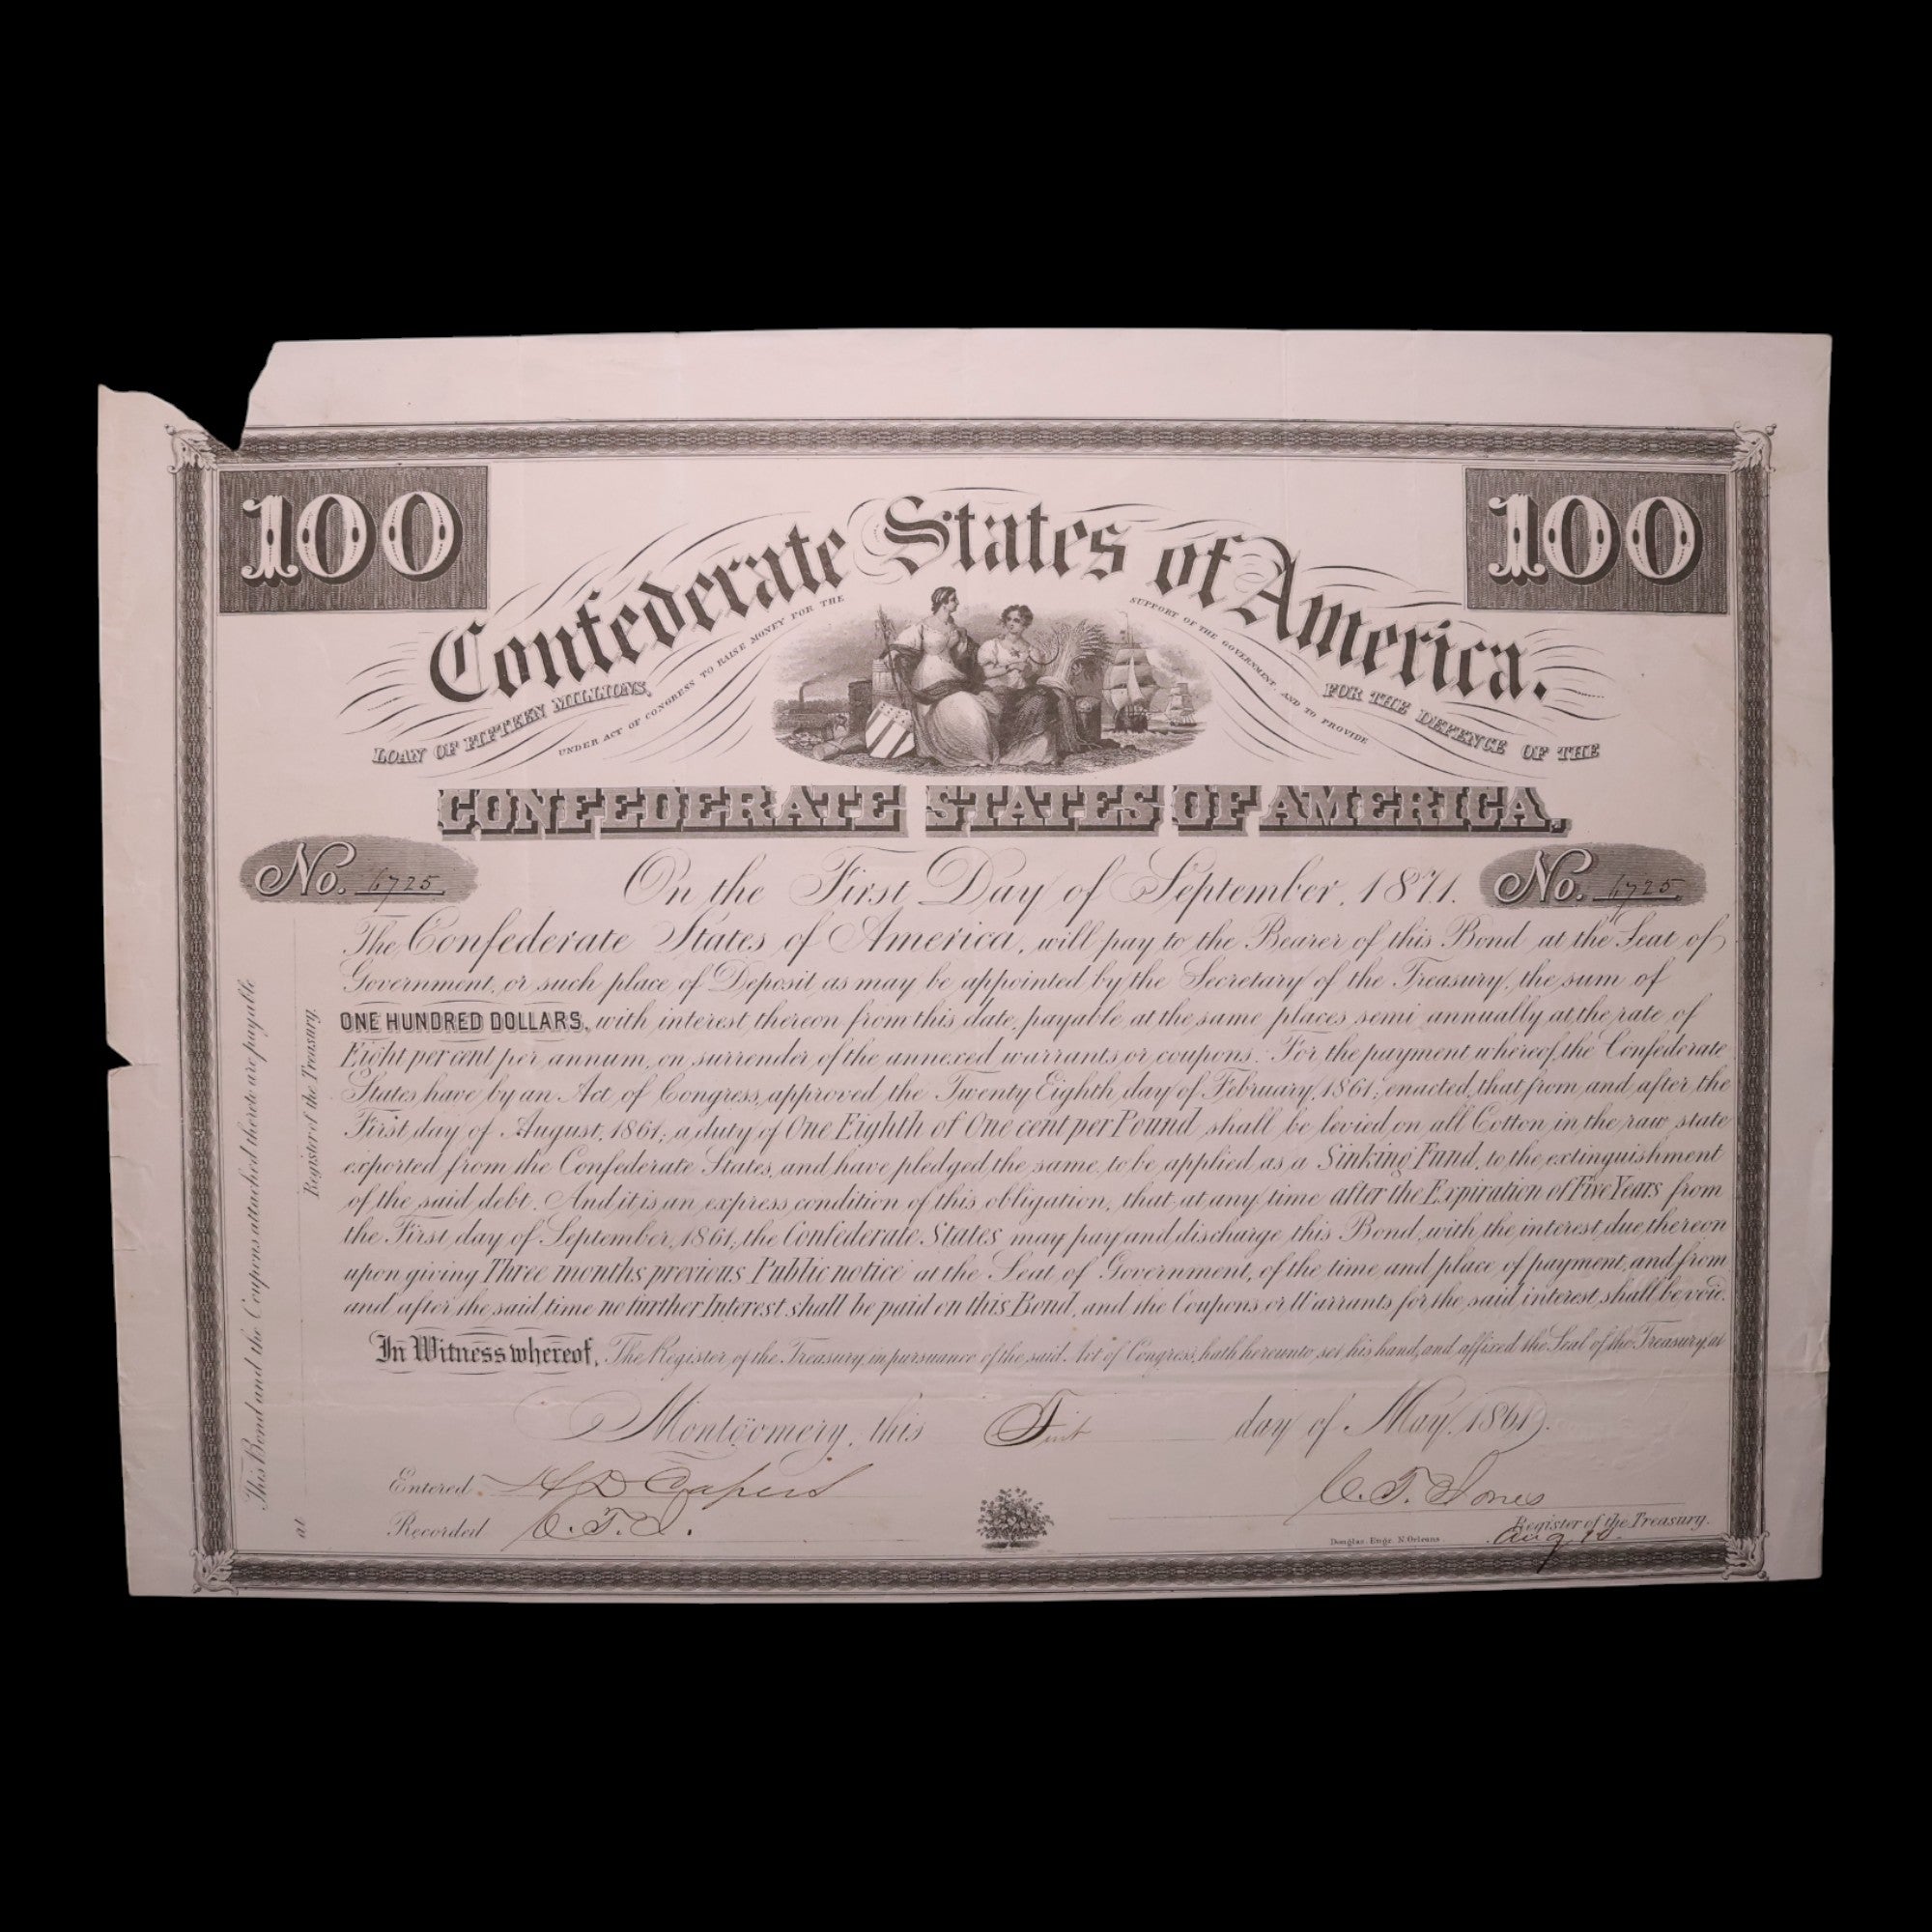 100
100
Confederate States of America.
LOAN OF FIFTEEN MILLIONS,
UNDER ACT OF CONGRESS TO RAISE MONEY FOR THE
SUPPORT OF THE GOVERNMENT AND TO PROVIDE
FOR THE DEFENCE OF THE
CONFEDERATE STATES OF AMERICA,
No. 6725
On the First Day of September, 1871.
No. 6725
The Confederate States of America, will pay to the Bearer of this Bond at the Seat of
Government, or such place of Deposit as may be appointed by the Secretary of the Treasury, the sum of
ONE HUNDRED DOLLARS, with interest thereon from this date, payable at the same places semi annually at the rate of
Eight per cent per annum, on surrender of the annexed warrants or coupons. For the payment whereof, the Confederate
States have by an Act of Congress, approved the Twenty Eighth day of February, 1861; enacted, that from and after the
First day of August, 1861; a duty of One Eighth of One cent per Pound shall be levied on all Cotton in the raw state
exported from the Confederate States, and have pledged the same to be applied as a Sinking Fund, to the extinguishment
of the said debt. And it is an express condition of this obligation, that at any time after the Expiration of Five Years from
the First day of September, 1861; the Confederate States may pay and discharge this Bond, with the interest due thereon
upon giving Three months previous Public notice at the Seat of Government, of the time and place of payment, and from
and after the said time no further Interest shall be paid on this Bond, and the Coupons or Warrants for the said interest, shall be void.
In Witness whereof, The Register of the Treasury, in pursuance of the said Act of Congress, hath hereunto set his hand, and affixed the Seal of the Treasury, at
Montgomery, this First day of May, 1861.
Entered H D Capers
Recorded C. T. J.
C. T. Jones
Register of the Treasury.
Douglas Engr N. Orleans
Aug 10.
This Bond and the Coupons attached thereto are payable
at
Register of the Treasury.